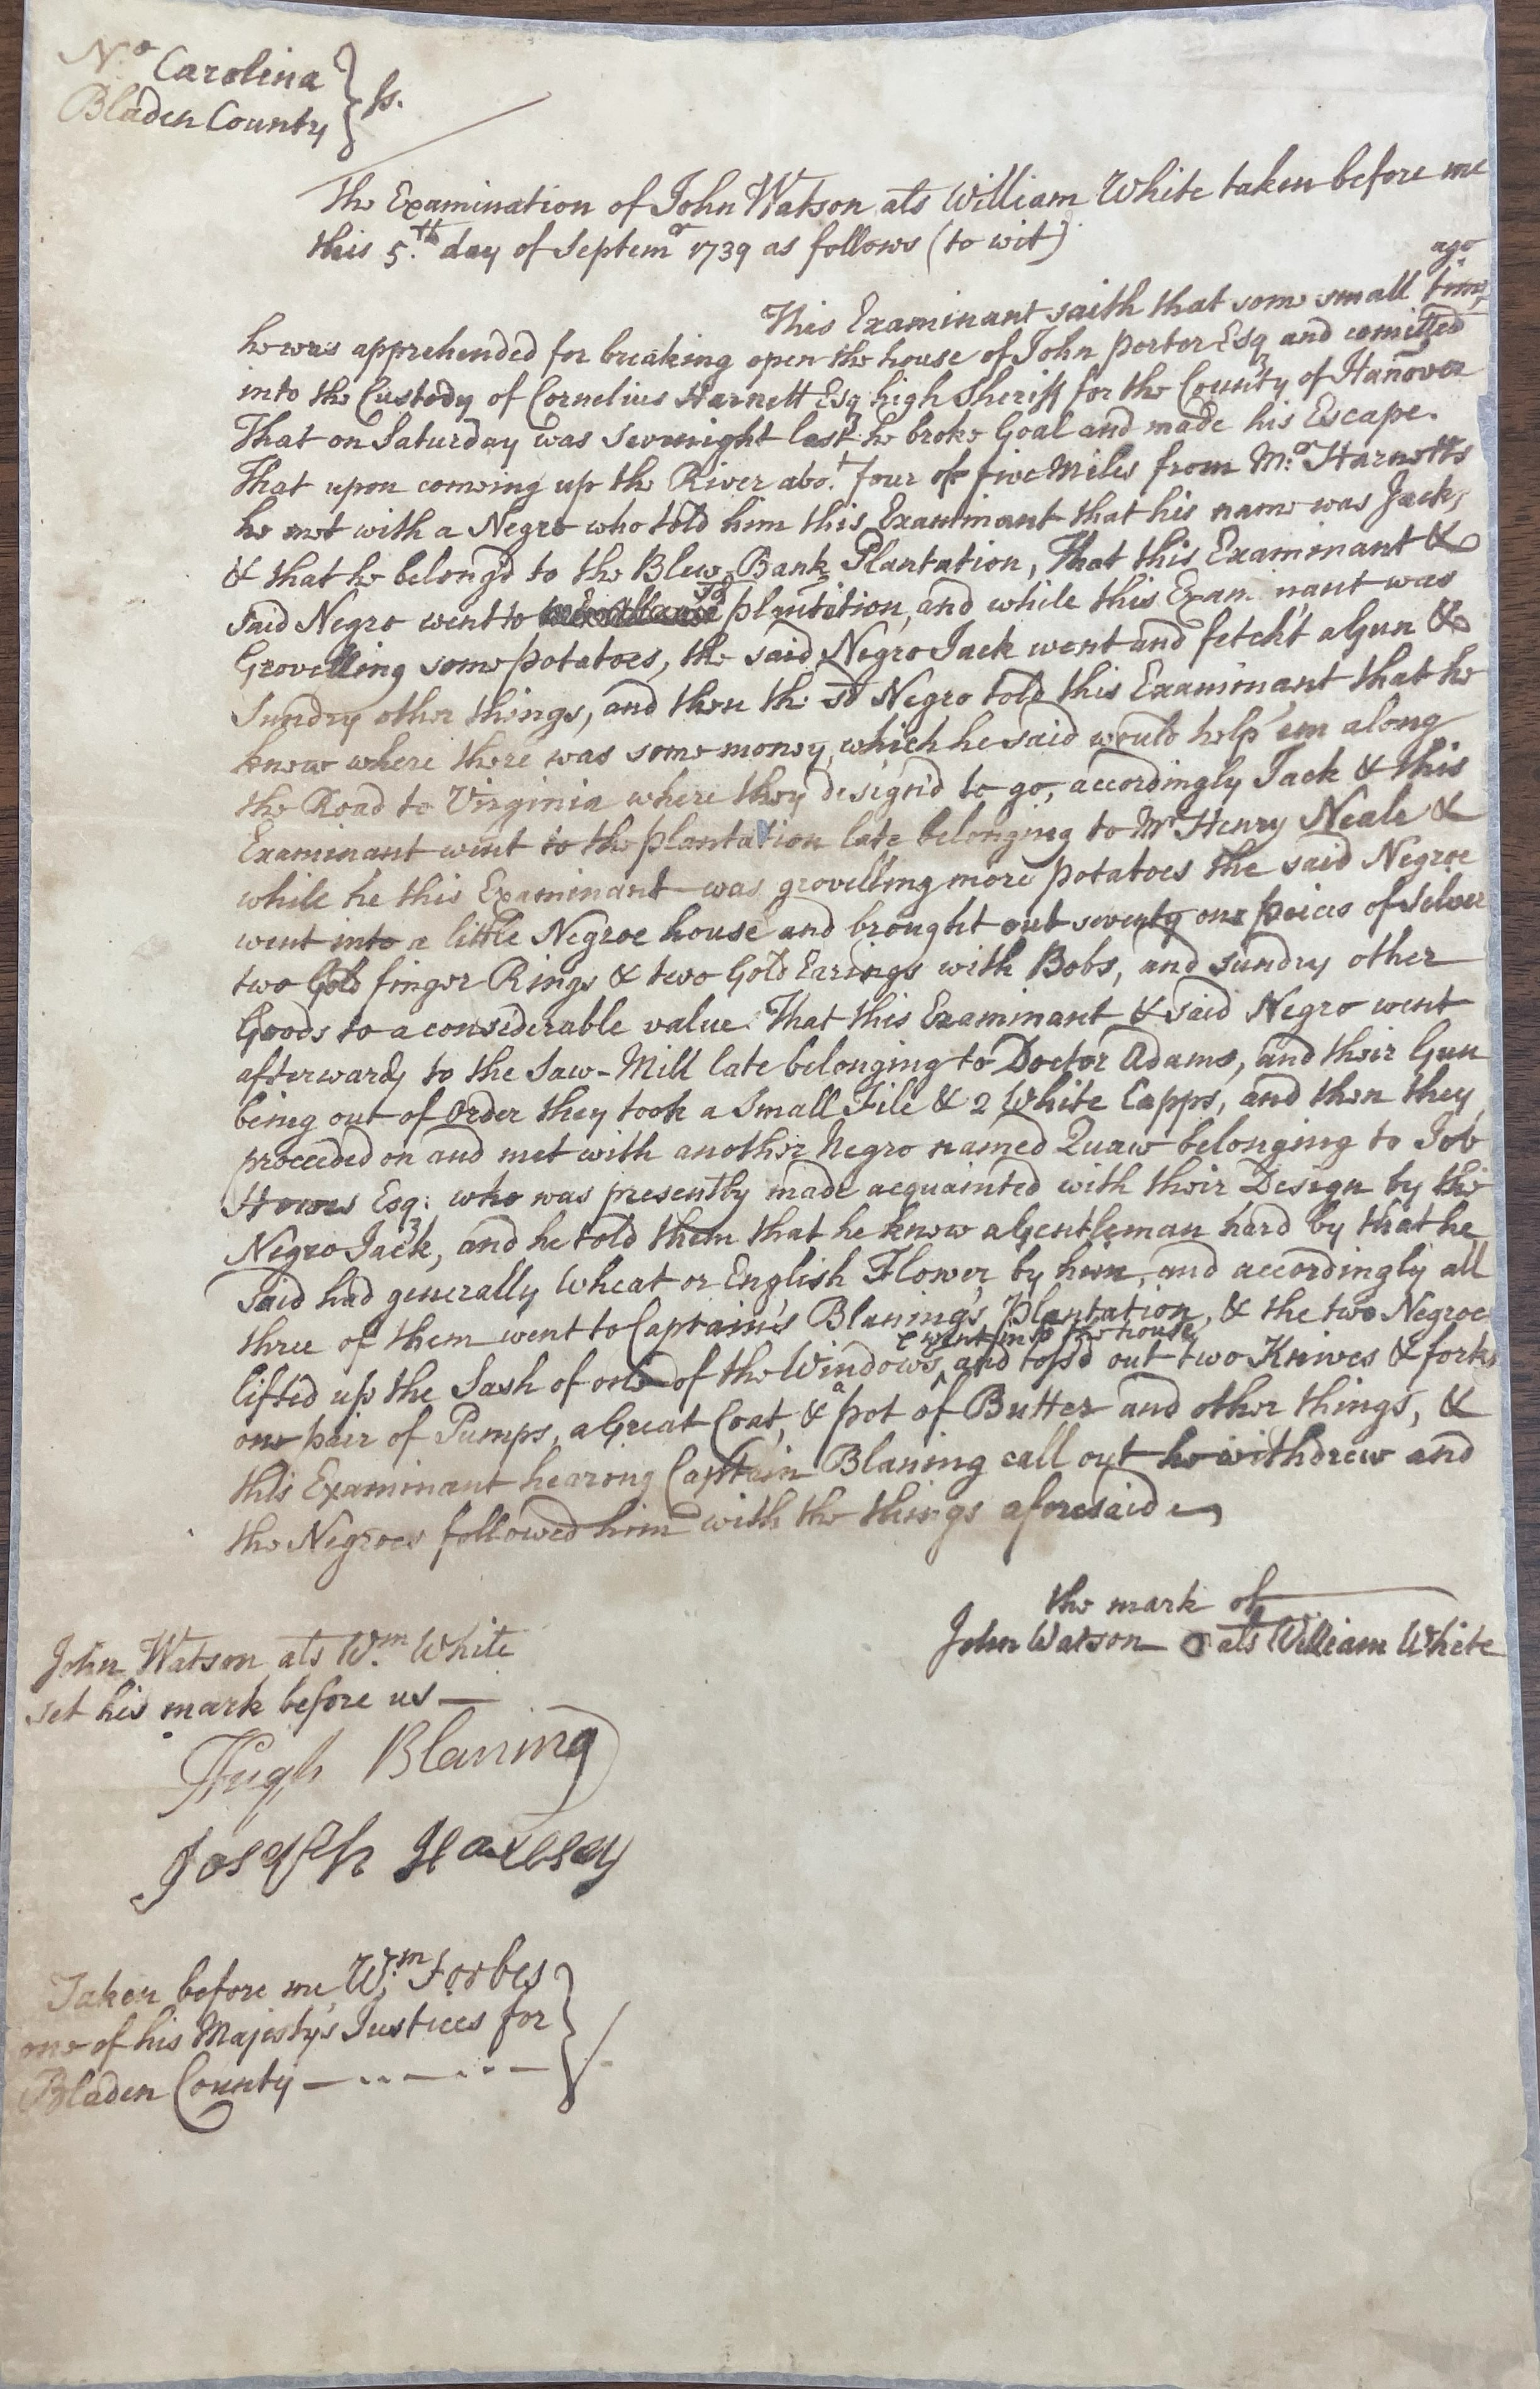 No Carolina
Bladen County } ss.
The Examination of John Watson als William White taken before me
this 5.th day of Septemr 1739 as follows (to wit)
ago
This Examinant saith that some small time,
he was apprehended for breaking open the house of John Porter Esqr and comitted
into the Custody of Cornelius Harnett Esqr high Sheriff for the County of Hanover
That on Saturday was sevennight last he broke Goal and made his Escape.
That upon comeing up the River abot. four or five Miles from Mr. Harnetts
he met with a Negro who told him this Examinant that his name was Jack,
& that he belong'd to the Blew Bank Plantation, That this Examinant &
said Negro went to sd plantation, and while this Examinant was
Grovelling some potatoes, the said Negro Jack went and fetch't a Gun &
Sundry other things, and then the sd Negro told this Examinant that he
knew where there was some money, which he said would help 'em along
the Road to Virginia where they design'd to go, accordingly Jack & this
Examinant went to the plantation late belonging to Mr Henry Neale &
while he this Examinant was grovelling more potatoes the said Negroe
went into a little Negroe house and brought out seventy one peices of silver
two Gold finger Rings & two Gold Earings with Bobs, and sundry other
Goods to a considerable value. That this Examinant & said Negro went
afterwards to the Saw-Mill late belonging to Doctor Adams, and their Gun
being out of Order they took a Small File & 2 White Capps, and then they
proceeded on and met with another Negro named Quaw belonging to Job
Howes Esqr: who was presently made acquainted with their Design by the
Negro Jack, and he told them that he knew a Gentleman hard by that he
said had generally Wheat or English Flower by him, and accordingly all
three of them went to Captain's Blaning's Plantation, & the two Negroe
went into the house
lifted up the Sash of one of the Windows, ^ and toss'd out two Knives & forks
one pair of Pumps, a Great Coat, & a pot of Butter and other things, &
this Examinant hearing Captain Blaning call out he withdrew and
the Negroes followed him with the things aforesaid
the mark of
John Watson O als William White
John Watson als Wm. White
set his mark before us
Hugh Blaning
Joseph
Taken before me Wm. Forbes
one of his Majesty's Justices for
Bladen County